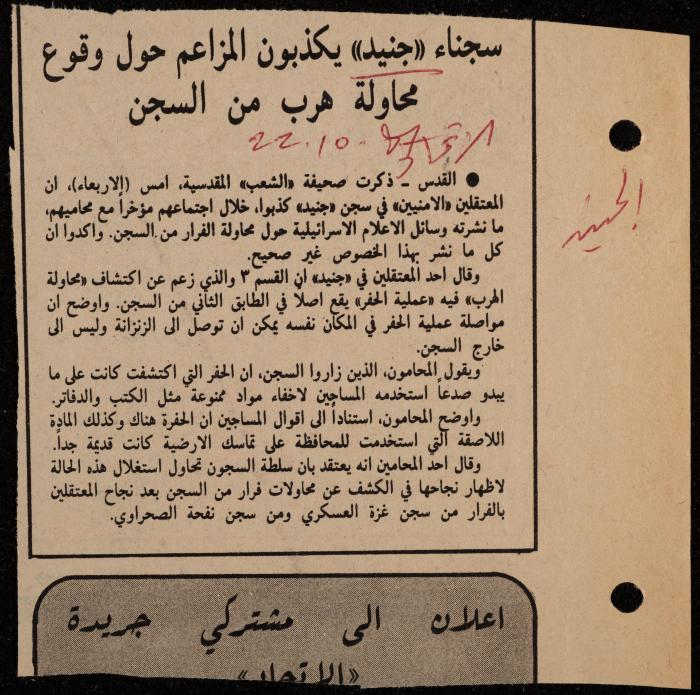 سجناء «جنيد» يكذبون المزاعم حول وقوع
محاولة هرب من السجن
الاتحاد 22.10
الجنيد
● القدس ـ ذكرت صحيفة «الشعب» المقدسية، امس (الاربعاء)، ان
المعتقلين «الامنيين» في سجن «جنيد» كذبوا، خلال اجتماعهم مؤخراً مع محاميهم،
ما نشرته وسائل الاعلام الاسرائيلية حول محاولة الفرار من السجن. واكدوا ان
كل ما نشر بهذا الخصوص غير صحيح.
وقال احد المعتقلين في «جنيد» ان القسم ٣ والذي زعم عن اكتشاف «محاولة
الهرب» فيه «عملية الحفر» يقع اصلاً في الطابق الثاني من السجن. واوضح ان
مواصلة عملية الحفر في المكان نفسه يمكن ان توصل الى الزنزانة وليس الى
خارج السجن.
ويقول المحامون، الذين زاروا السجن، ان الحفر التي اكتشفت كانت على ما
يبدو صدعاً استخدمه المساجين لاخفاء مواد ممنوعة مثل الكتب والدفاتر.
واوضح المحامون، استناداً الى اقوال المساجين ان الحفرة هناك وكذلك المادة
اللاصقة التي استخدمت للمحافظة على تماسك الارضية كانت قديمة جداً.
وقال احد المحامين انه يعتقد بان سلطة السجون تحاول استغلال هذه الحالة
لاظهار نجاحها في الكشف عن محاولات فرار من السجن بعد نجاح المعتقلين
بالفرار من سجن غزة العسكري ومن سجن نفحة الصحراوي.
اعلان الى مشتركي جريدة
«الاتحاد»